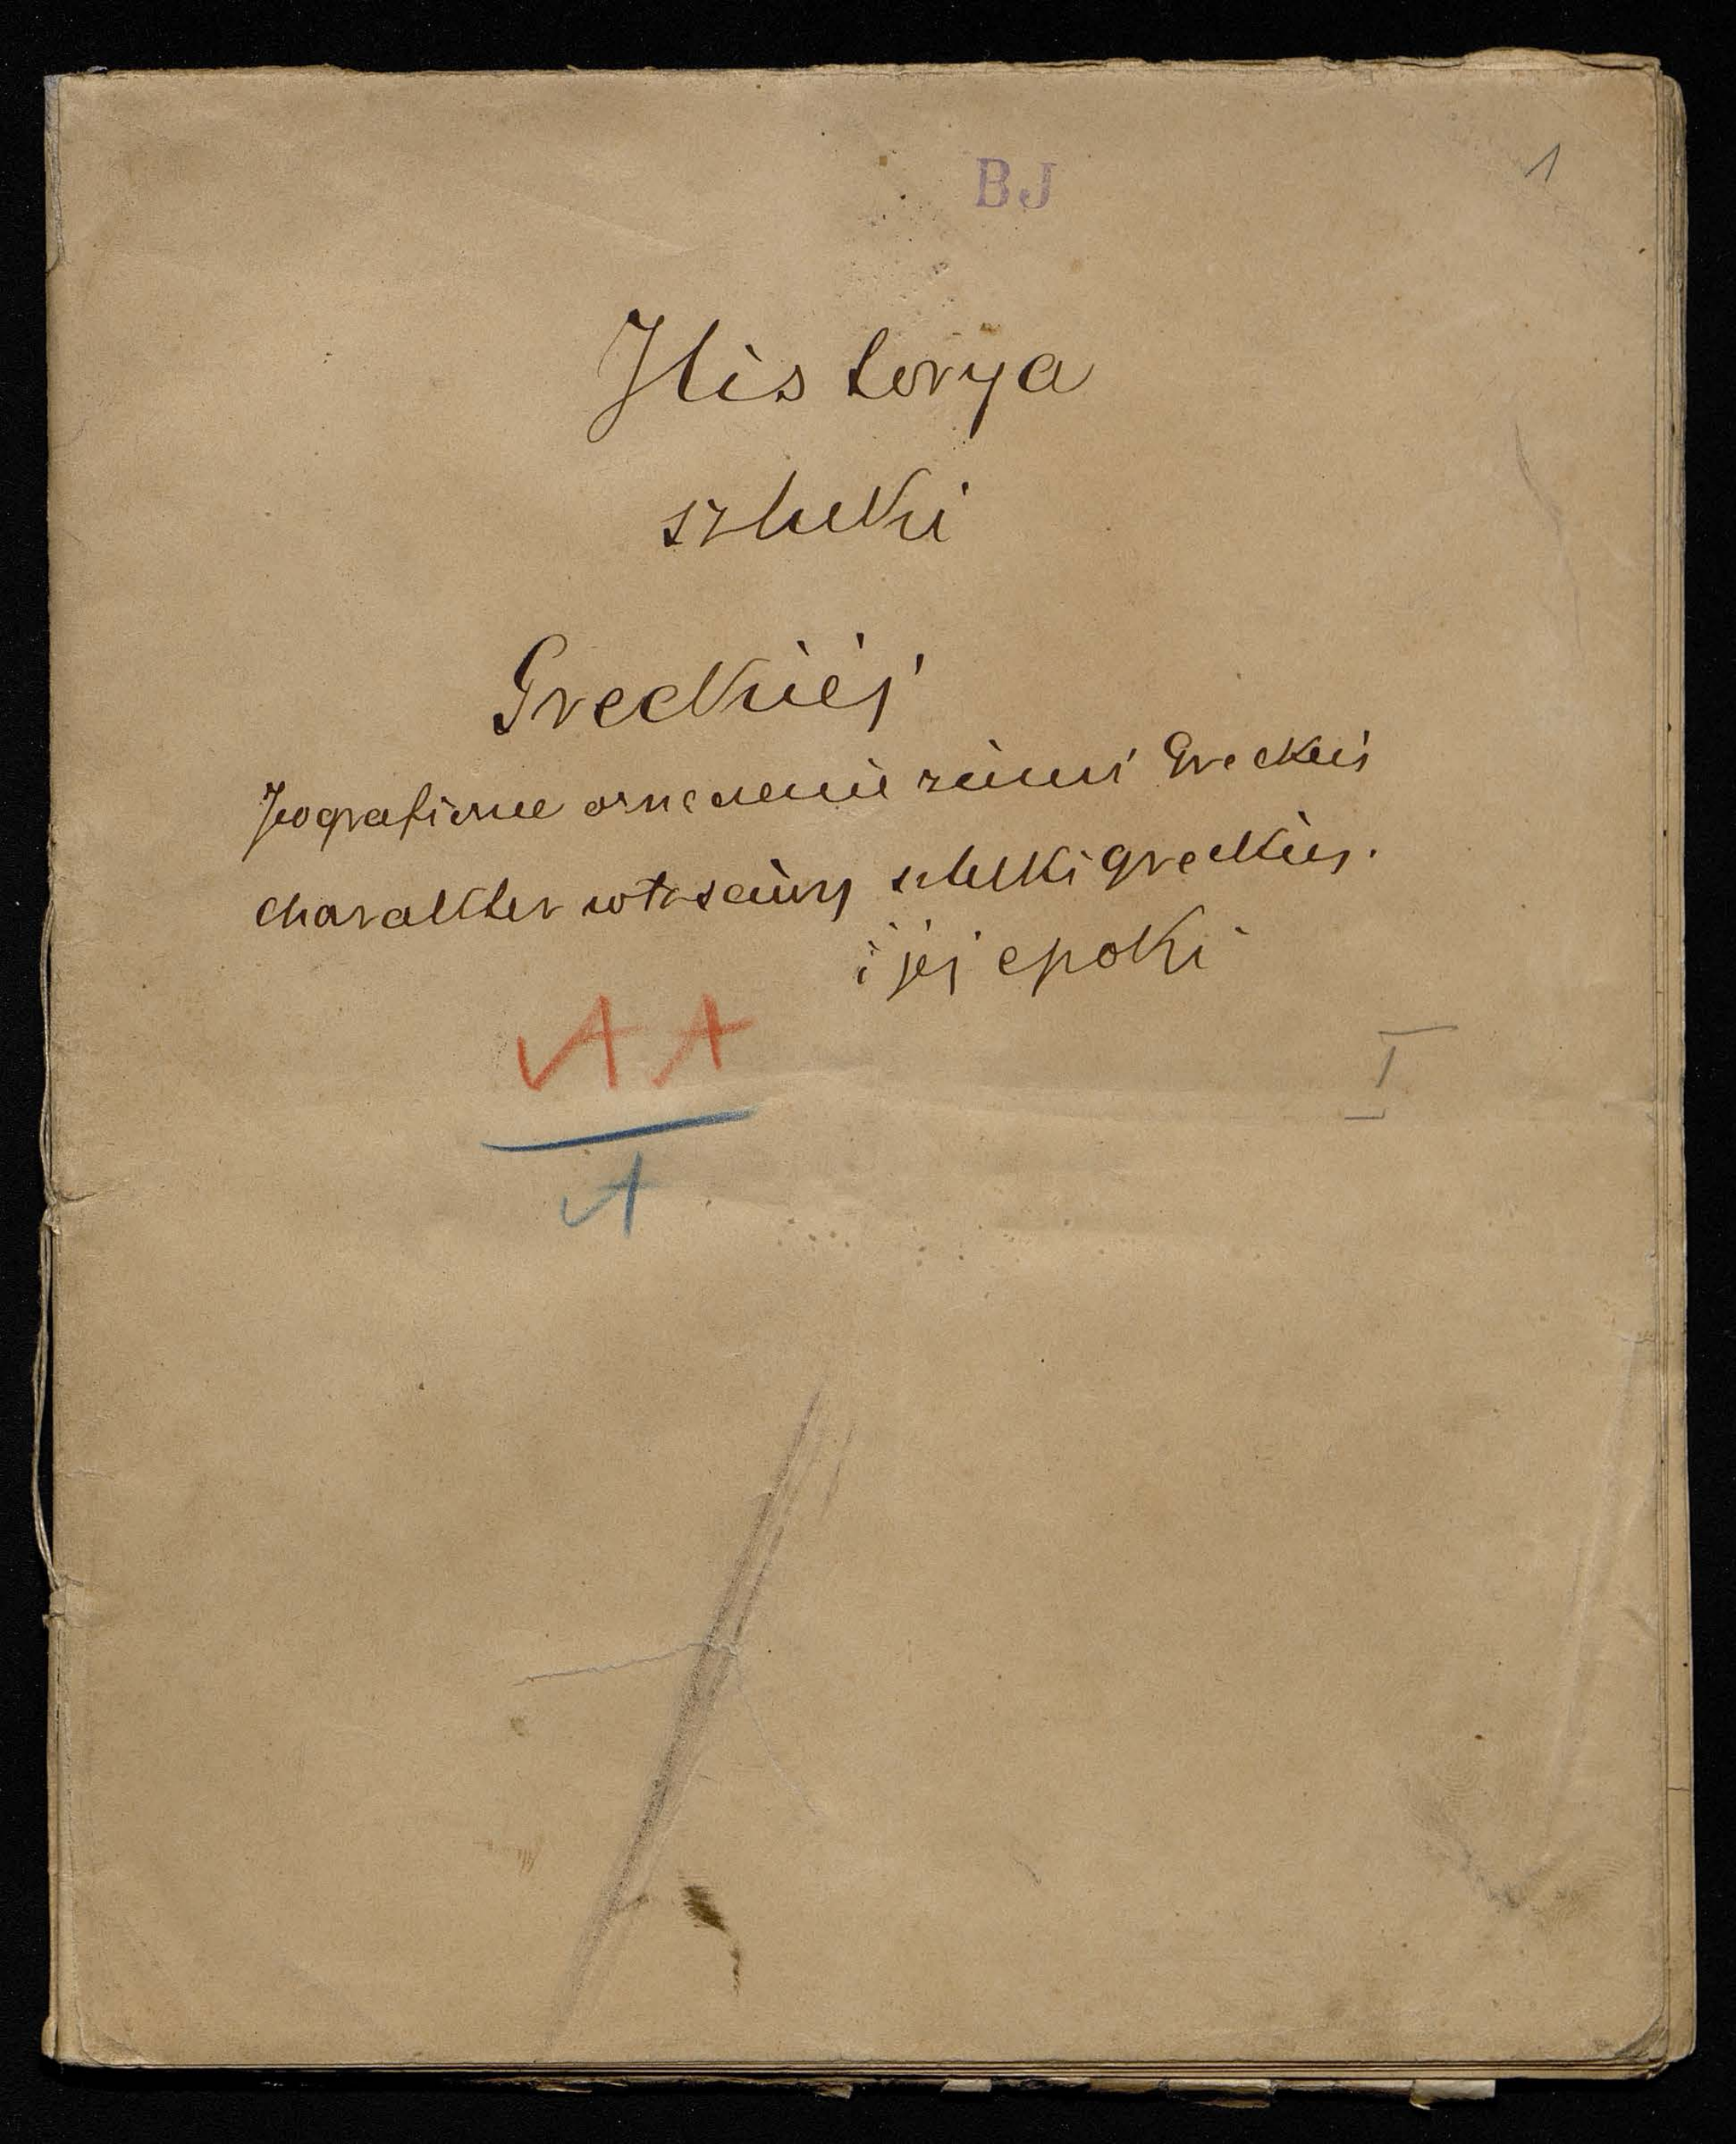 BJ
1
Historya
sztuki
Greckiéj
Jeograficzne oznaczenie ziemi Greckiéj
charakter właściwy sztuki greckiéj.
i jéj epoki
AA
A
I